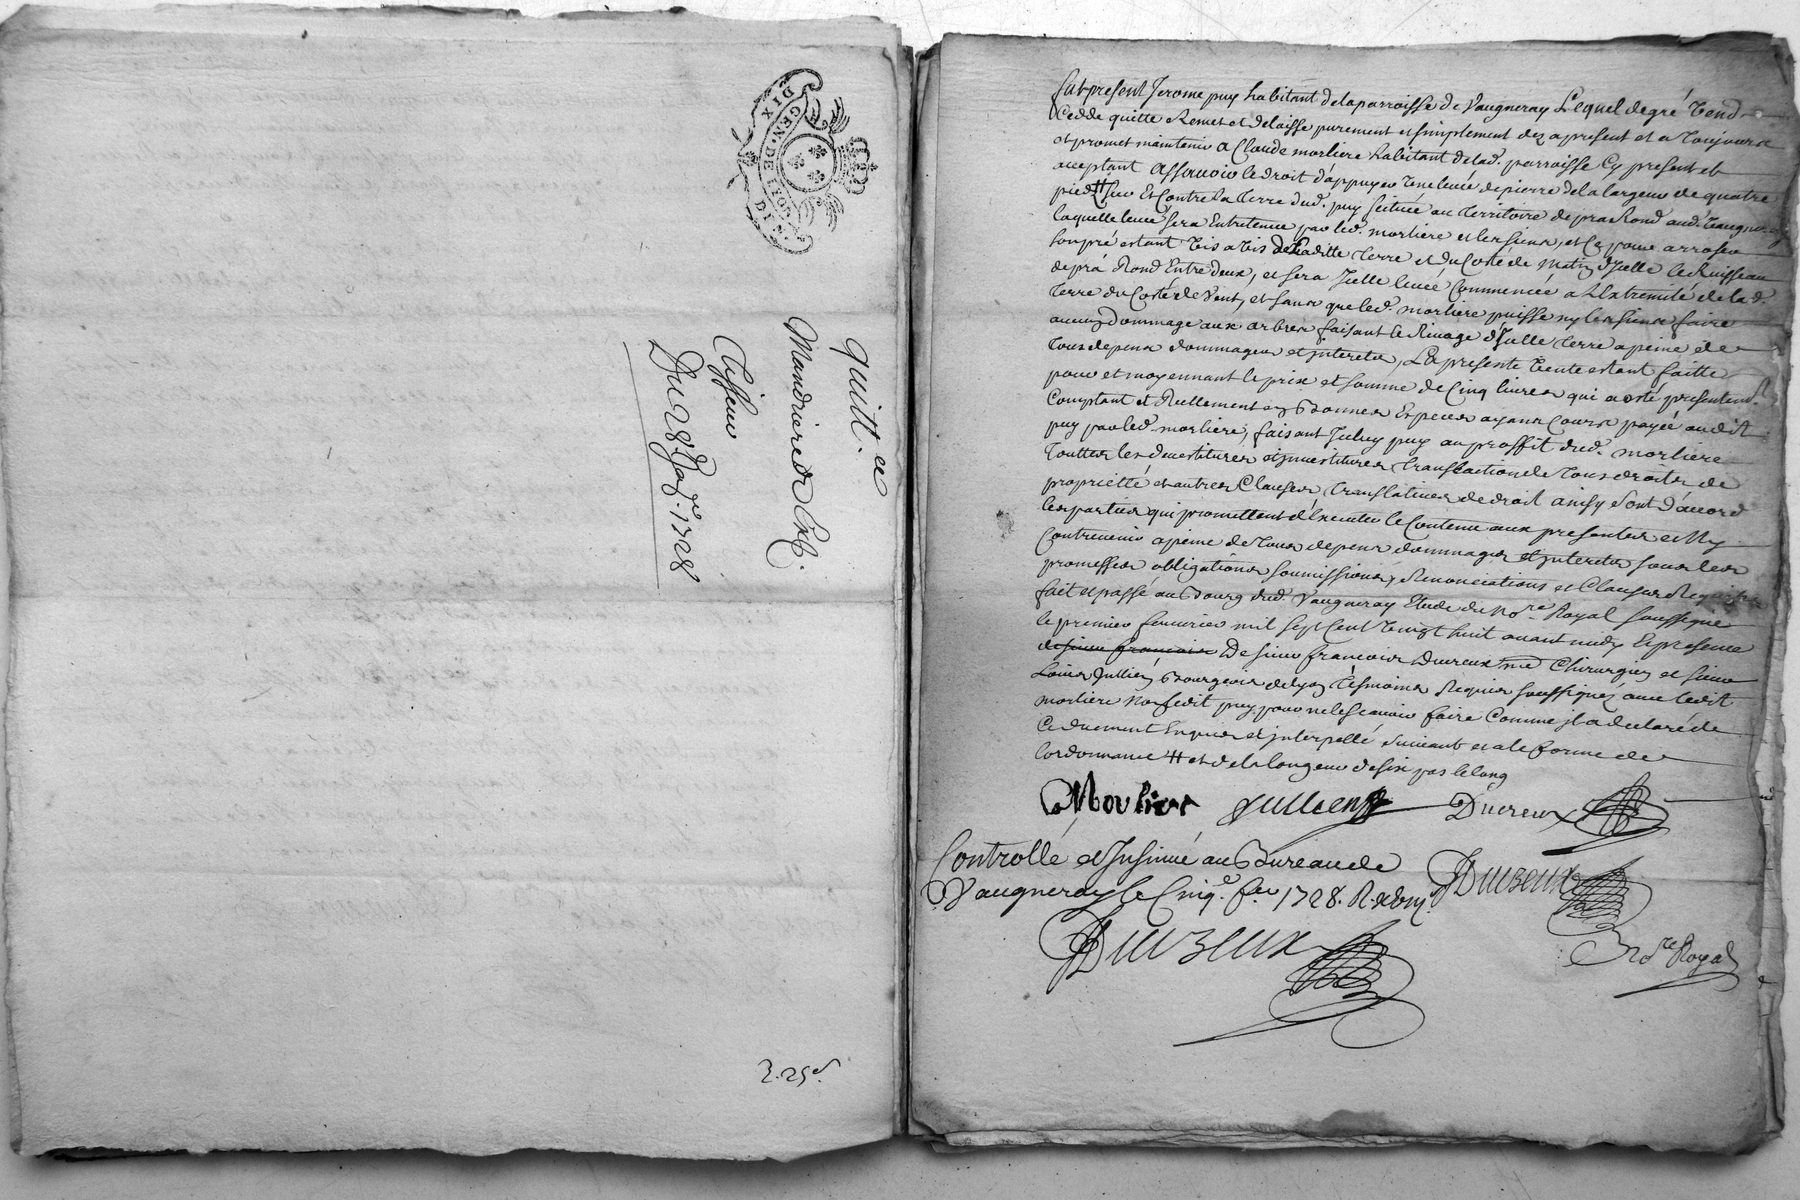 GEN. DE RIE DIX
quitt. ce
Mandrier et Exl.
Tisseur
Du 28e Janr. 1728
2.25s.
fut present Jerome puy habitant de la parroisse de Vaugneray Lequel de gré Vend
Cedde quitte Remet et delaisse purement et simplement dez a present et a toujours
et promet maintenir a Claude morliere habitant de lad. parroisse Cy present et
acceptant Assavoir le droit d'appuyer Une levée de pierre de la largeur de quatre
pied # sur Et Contre la terre dud. puy scituée au territoire de pra Rond aud. Vaugneray
laquelle levée sera Entretenue par led. morliere et les siens, et Ce pour arroser
son pré estant vis a vis de Laditte terre et du Costé de Matin d'Jcelle le Ruisseau
de pra Rond Entre deux, et sera Jcelle levée Commencée a l'Extremité de la d.
terre du Costé de Vent, et sans que led. morliere puisse ny les siens faire
aucun dommage aux arbres faisant le Rivage d'Jcelle terre a peine de
tous depens dommages et jnterets, La presente Vente estant faitte
pour et moyennant le prix et somme de Cinq livres qui a esté presentemt.
Comptant et Reellement en Bonnes Especes ayans Cours payée audit
puy par led. morliere, faisant Jceluy puy au proffit dud. morliere
touttes les devestitures et jnvestitures translaction de tous droits de
proprieté et autres Clauses translatives de droit ainsy sont d'accord
les parties qui promettent d'Executer le Contenu aux presentes et Ny
Contrevenir a peine de tous depens dommages et jnterets sous leurs
promesses obligations soumissions, Renonciations et Clauses Requises
fait et passé au Bourg dud. Vaugneray Etude du No.re Royal soussigné
le premier fevrier mil sept Cent Vingt huit avant midy En presence
de sieur francois De sieur francois Ducreux me Chirurgien et sieur
Louis Jullien Bourgeois de Lyon tesmoins Requis soussignés avec ledit
morliere Non ledit puy pour ne le scavoir faire Comme jl a declaré de
Ce duement Enquis et jnterpellé suivant et a la forme de
l'ordonnance # et de la longeur de six pas le long
Morliere Jullien Ducreux
Controllé et Insinué au Bureau de
Vaugneray le Cinq.e fer 1728. R.
Ducreux
Ducreux
No.re Royal